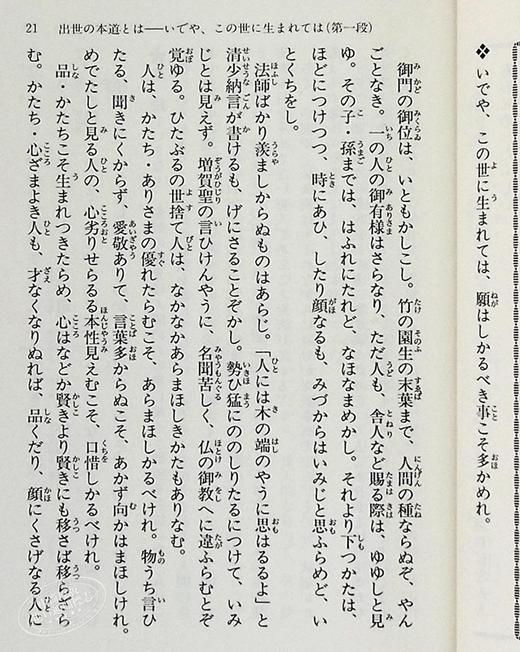 ❖いでや、この世に生まれては、願はしかるべき事こそ多かめれ。
21 出世の本道とは──いでや、この世に生まれては（第一段）
御門の御位は、いともかしこし。竹の園生の末葉まで、人間の種ならぬぞ、やん
ごとなき。一の人の御有様はさらなり、ただ人も、舎人など賜る際は、ゆゆしと見
ゆ。その子・孫までは、はふれにたれど、なほなまめかし。それより下つかたは、
ほどにつけつつ、時にあひ、したり顔なるも、みづからはいみじと思ふらめど、い
とくちをし。
法師ばかり羨ましからぬものはあらじ。「人には木の端のやうに思はるるよ」と
清少納言が書けるも、げにさることぞかし。勢ひ猛にののしりたるにつけて、いみ
じとは見えず。増賀聖の言ひけんやうに、名聞苦しく、仏の御教へに違ふらむとぞ
覚ゆる。ひたぶるの世捨て人は、なかなかあらまほしきかたもありなむ。
人は、かたち・ありさまの優れたらむこそ、あらまほしかるべけれ。物うち言ひ
たる、聞きにくからず、愛敬ありて、言葉多からぬこそ、あかず向かはまほしけれ。
めでたしと見る人の、心劣りせらるる本性見えむこそ、口惜しかるべけれ。
品・かたちこそ生まれつきたらめ、心はなどか賢きより賢きにも移さば移らざら
む。かたち・心ざまよき人も、才なくなりぬれば、品くだり、顔にくさげなる人に